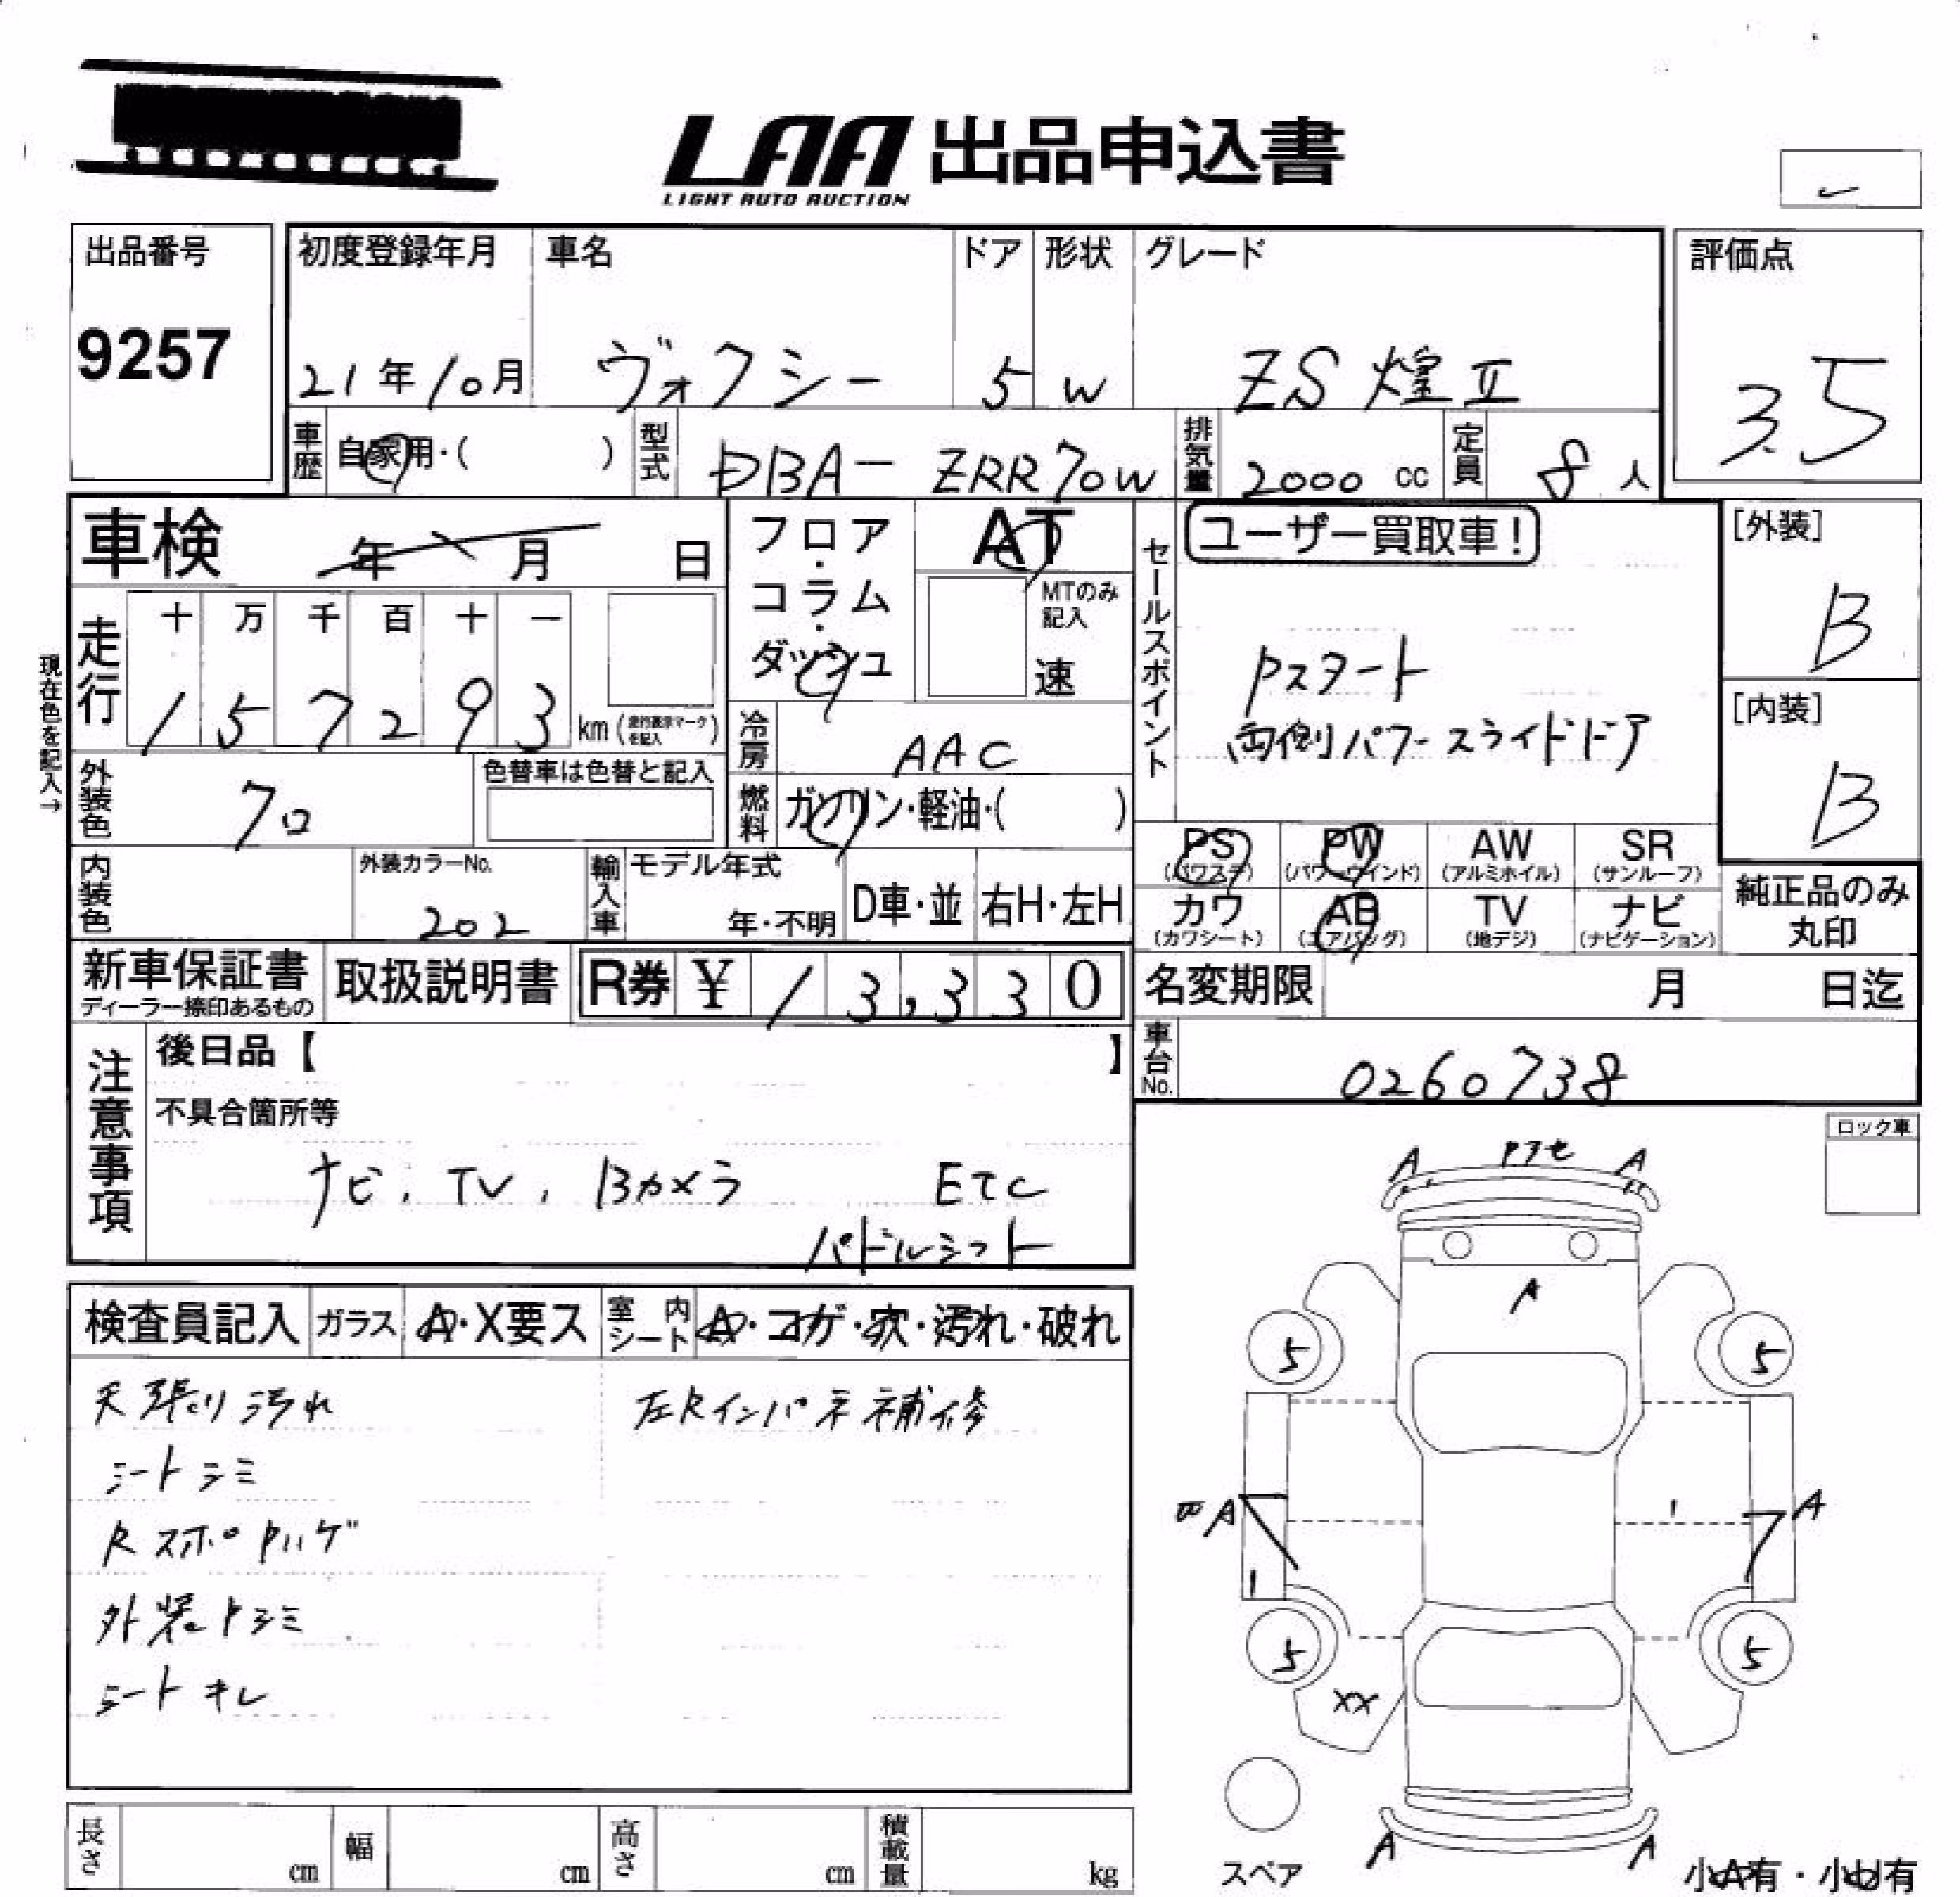 LAA 出品申込書
LIGHT AUTO AUCTION
出品番号
9257
初度登録年月
21年10月
車名
ヴォクシー
ドア
5
形状
W
グレード
ZS 煌 II
評価点
3.5
車歴
自家用・( )
型式
DBA-ZRR70W
排気量
2000 cc
定員
8 人
車検 年 月 日
フロア・コラム・ダッシュ
AT
MTのみ記入
速
走行
十 万 千 百 十 一
1 5 7 2 9 3 km (走行表示マークを記入)
現在色を記入→
冷房
AAC
外装色
クロ
色替車は色替と記入
燃料
ガソリン・軽油・( )
内装色
外装カラーNo.
202
輸入車
モデル年式
年・不明
D車・並
右H・左H
新車保証書
ディーラー捺印あるもの
取扱説明書
R券 ¥ 13,330
セールスポイント
ユーザー買取車!
Pスタート
両側パワースライドドア
[外装]
B
[内装]
B
PS PW AW SR
(パワステ) (パワーウインド) (アルミホイル) (サンルーフ)
カワ AB TV ナビ
(カワシート) (エアバッグ) (地デジ) (ナビゲーション)
純正品のみ
丸印
名変期限 月 日迄
車台No.
0260738
注意事項
後日品【 】
不具合箇所等
ナビ, TV, Bカメラ ETC
パドルシフト
ロック車
検査員記入
ガラス
A・X要ス
室内シート
A・コガ・穴・汚れ・破れ
天張り汚れ
シートシミ
外装トシミ
シートキレ
左Rインパネ補修
A A
A
5 5
A A
1 1
5 5
XX
A A
スペア
小A有・小U有
長さ cm
幅 cm
高さ cm
積載量 kg